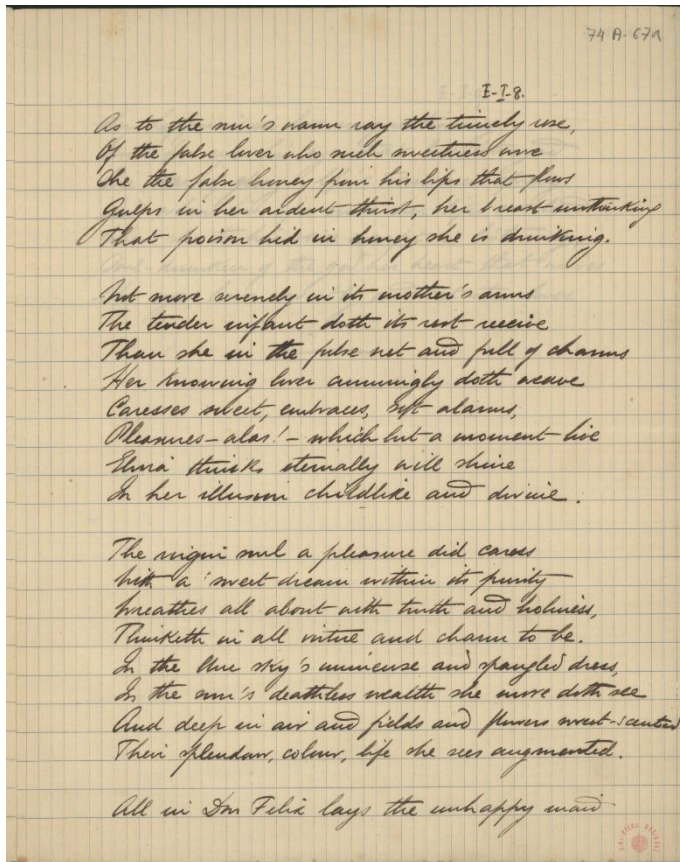 74A-67a
I-I-8.
As to the sun's warm ray the timely rose,
Of the false lover who such sweetness wove
She the false honey from his lips that flows
Gulps in her ardent thirst, her breast unthinking
That poison hid in honey she is drinking.
Not more serenely in its mother's arms
The tender infant doth its rest receive
Than she in the false net and full of charms
Her knowing lover cunningly doth weave
Caresses sweet, embraces, soft alarms,
Pleasures – alas! – which but a moment live
Elvira thinks eternally will shine
In her illusion childlike and divine.
The virgin soul a pleasure did caress
With a sweet dream within its purity
Breathes all about with truth and holiness,
Thinketh in all virtue and charm to be.
In the blue sky's immense and spangled dress,
In the sun's deathless wealth she more doth see
And deep in air and fields and flowers sweet-scented
Their splendour, colour, life she sees augmented.
All in Don Felix lays the unhappy maid